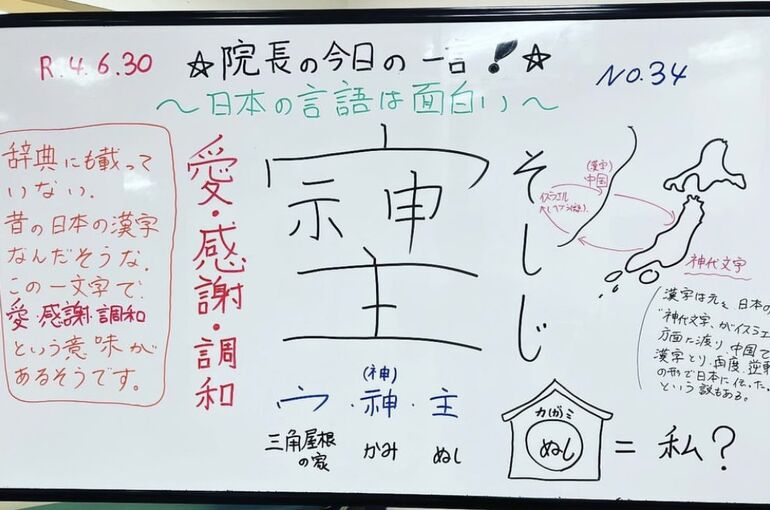 R.4.6.30
☆院長の今日の一言!☆
No.34
〜日本の言語は面白い〜
辞典にも載って
いない.
昔の日本の漢字
なんだそうな.
この一文字で.
愛・感謝・調和
という意味が
あるそうです。
愛・感謝・調和
示申
主
そしじ
(神)
宀・神・主
三角屋根
の家
かみ
ぬし
(漢字)
中国
イスラエル
神代文字
漢字は元々日本の
"神代文字"がイスラエ
方面に渡り.中国で
漢字とり.再度.逆輸
の形で日本に伝った.
という説もある。
カガミ
ぬし
= 私?